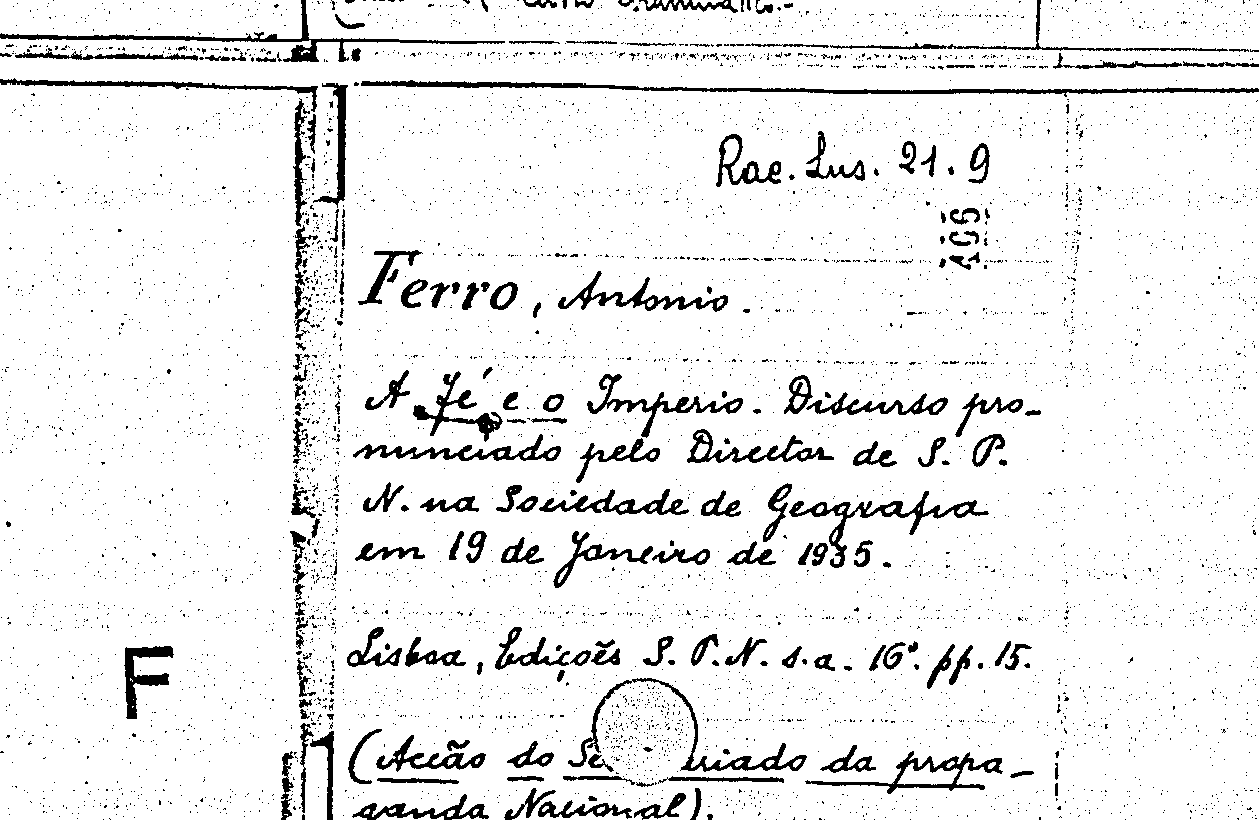 Rac. Lus. 21.9
495
Ferro, Antonio.
A Fé e o Imperio. Discurso pro-
nunciado pelo Director de S. P.
N. na Sociedade de Geografia
em 19 de Janeiro de 1935.
Lisboa, Edições S. P. N. s.a. 16°. pp. 15.
F
(Accão do da propa-
ganda Nacional).